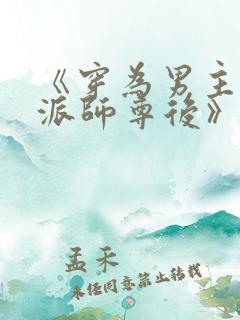 《穿為男主
派師尊後》
孟禾
未經同意禁止轉載